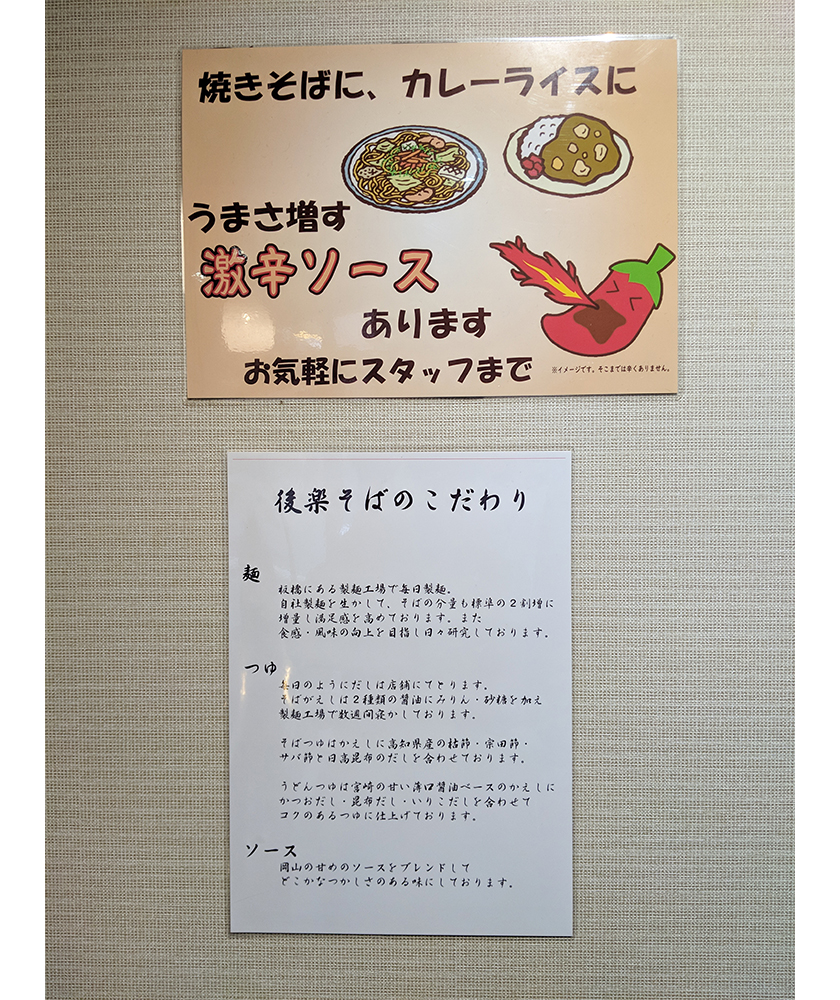 焼きそばに、カレーライスに
うまさ増す
激辛ソース
あります
お気軽にスタッフまで
※イメージです。そこまでは辛くありません。
後楽そばのこだわり
麺
板橋にある製麺工場で毎日製麺。
自社製麺を生かして、そばの分量も標準の2割増に
増量し満足感を高めております。また
食感・風味の向上を目指し日々研究しております。
つゆ
毎日のようにだしは店舗にてとります。
そばがえしは2種類の醤油にみりん・砂糖を加え
製麺工場で数週間寝かしております。
そばつゆはかえしに高知県産の枯節・宗田節・
サバ節と日高昆布のだしを合わせております。
うどんつゆは宮崎の甘い薄口醤油ベースのかえしに
かつおだし・昆布だし・いりこだしを合わせて
コクのあるつゆに仕上げております。
ソース
岡山の甘めのソースをブレンドして
どこかなつかしさのある味にしております。